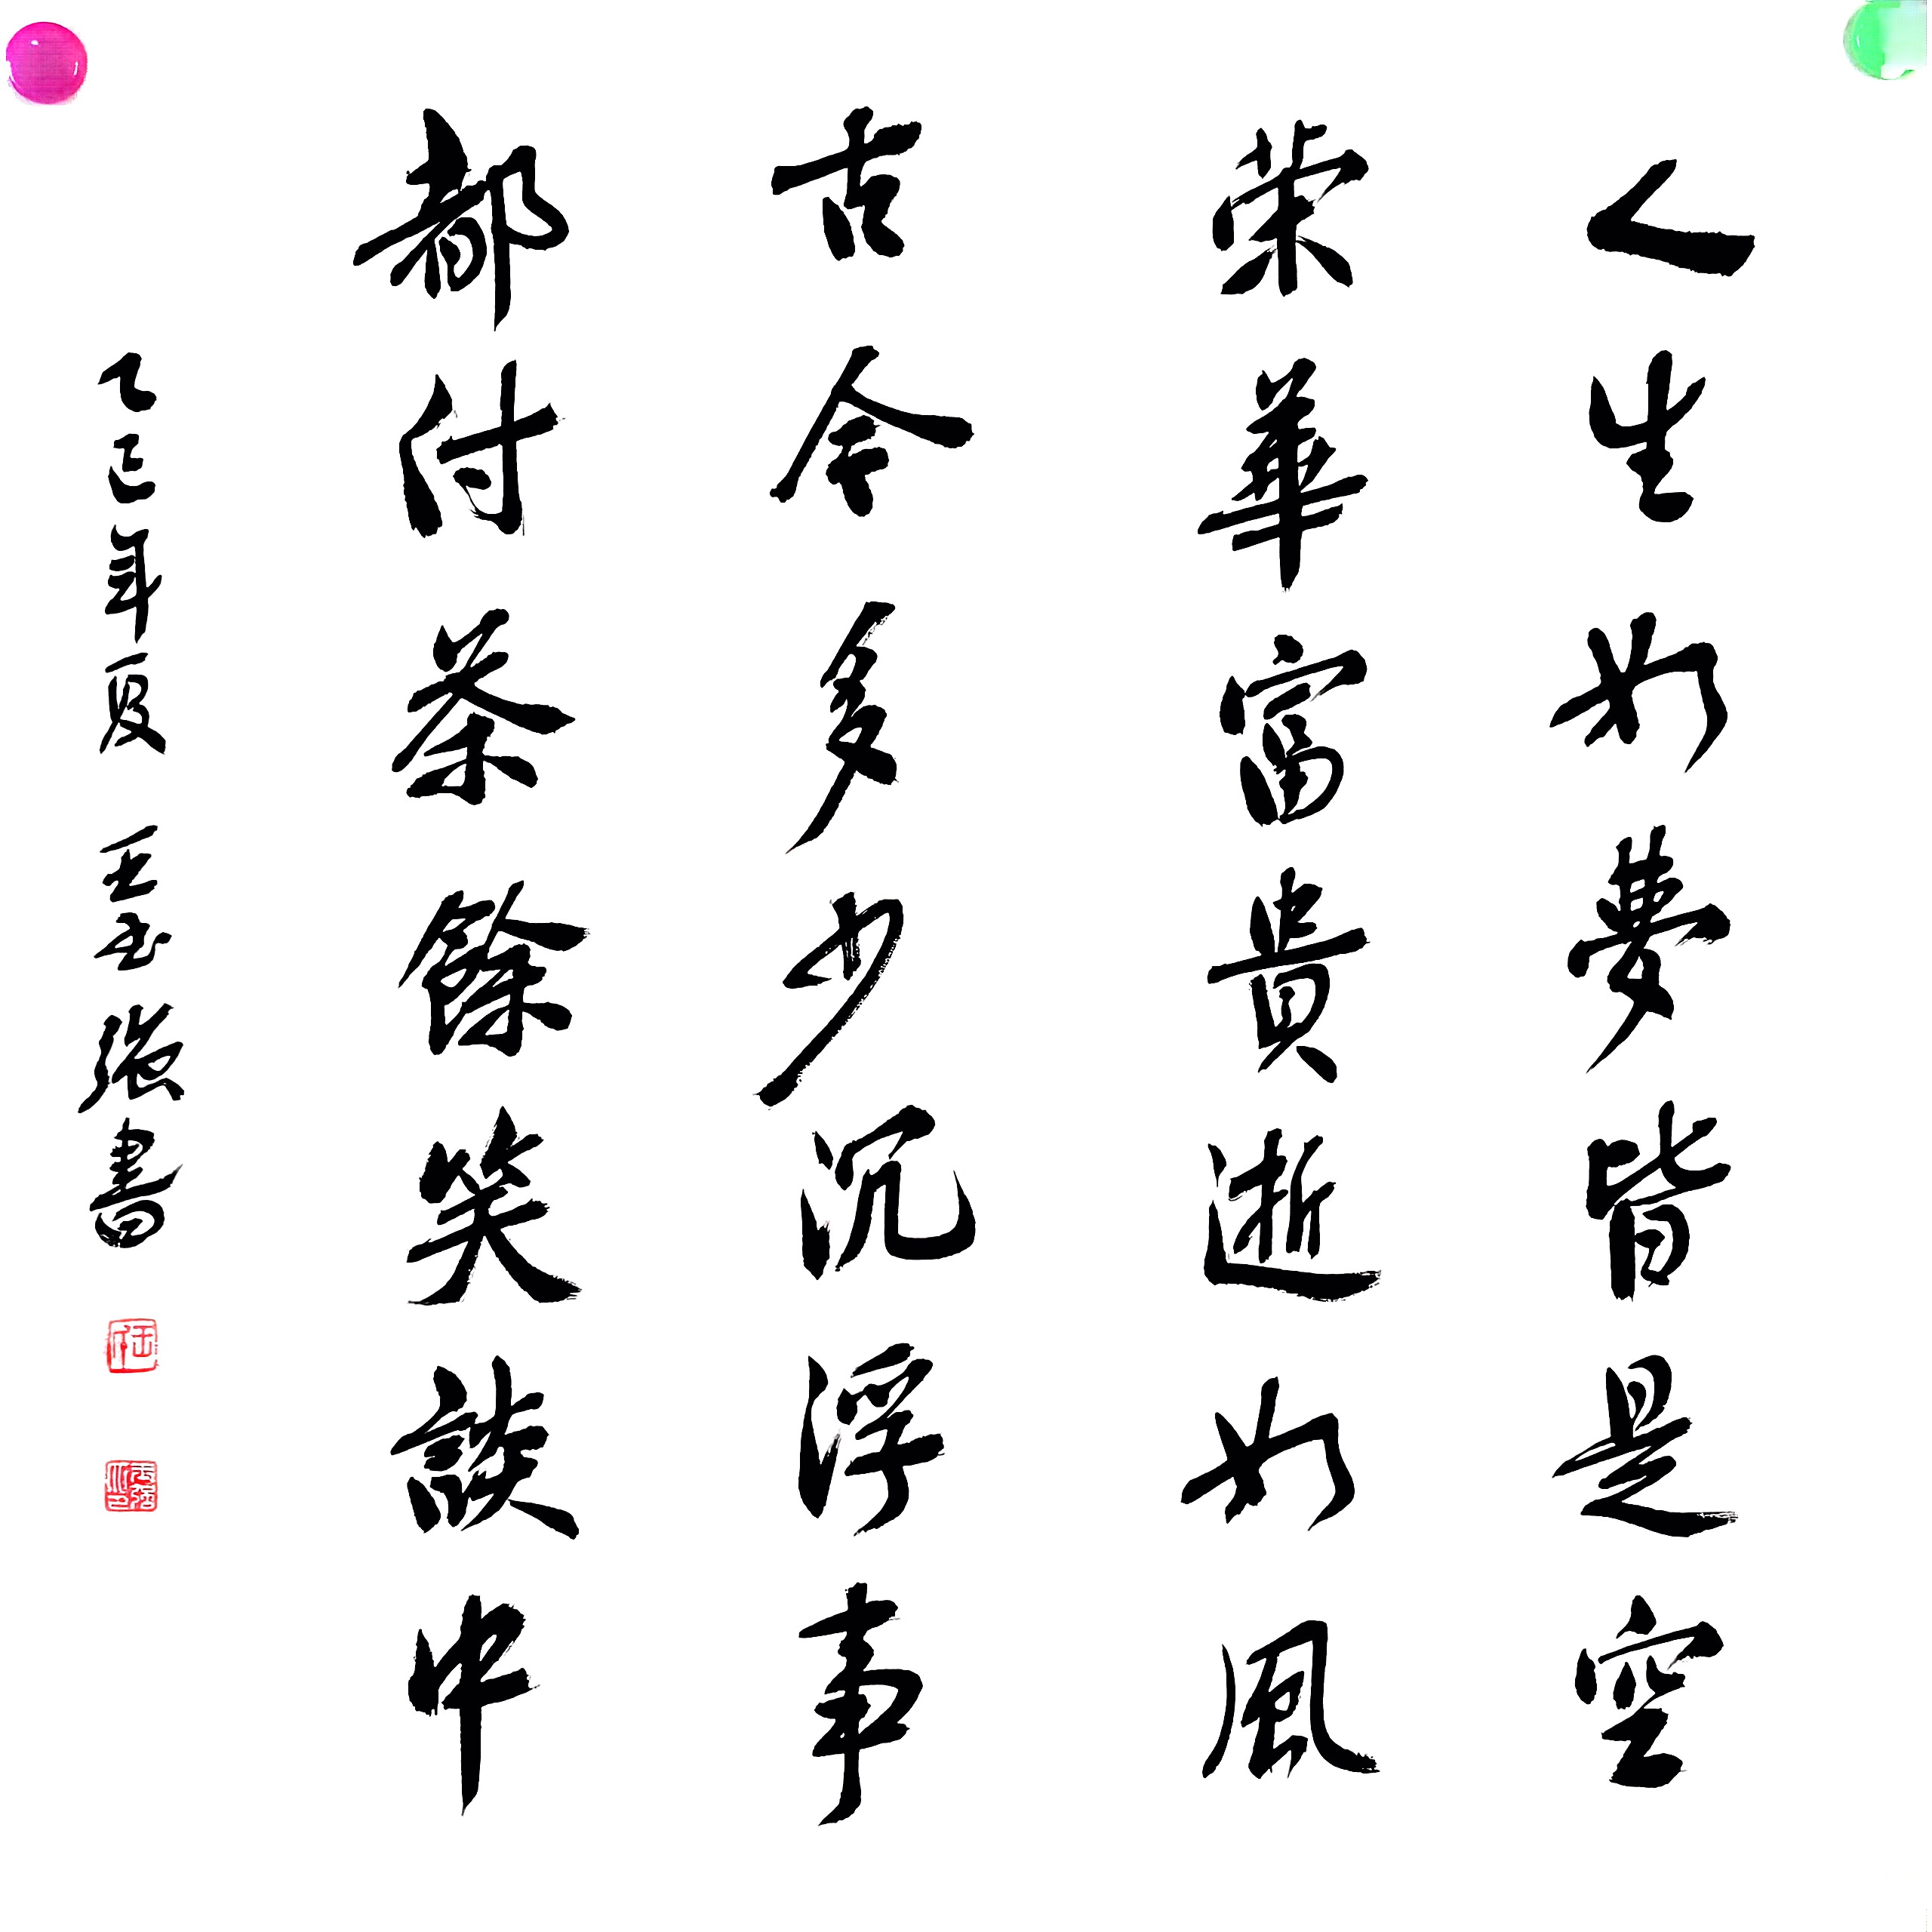 人生如夢皆是空
榮華富貴逝如風
古今多少沉浮事
都付茶餘笑談中
乙巳年夏 王玉張書